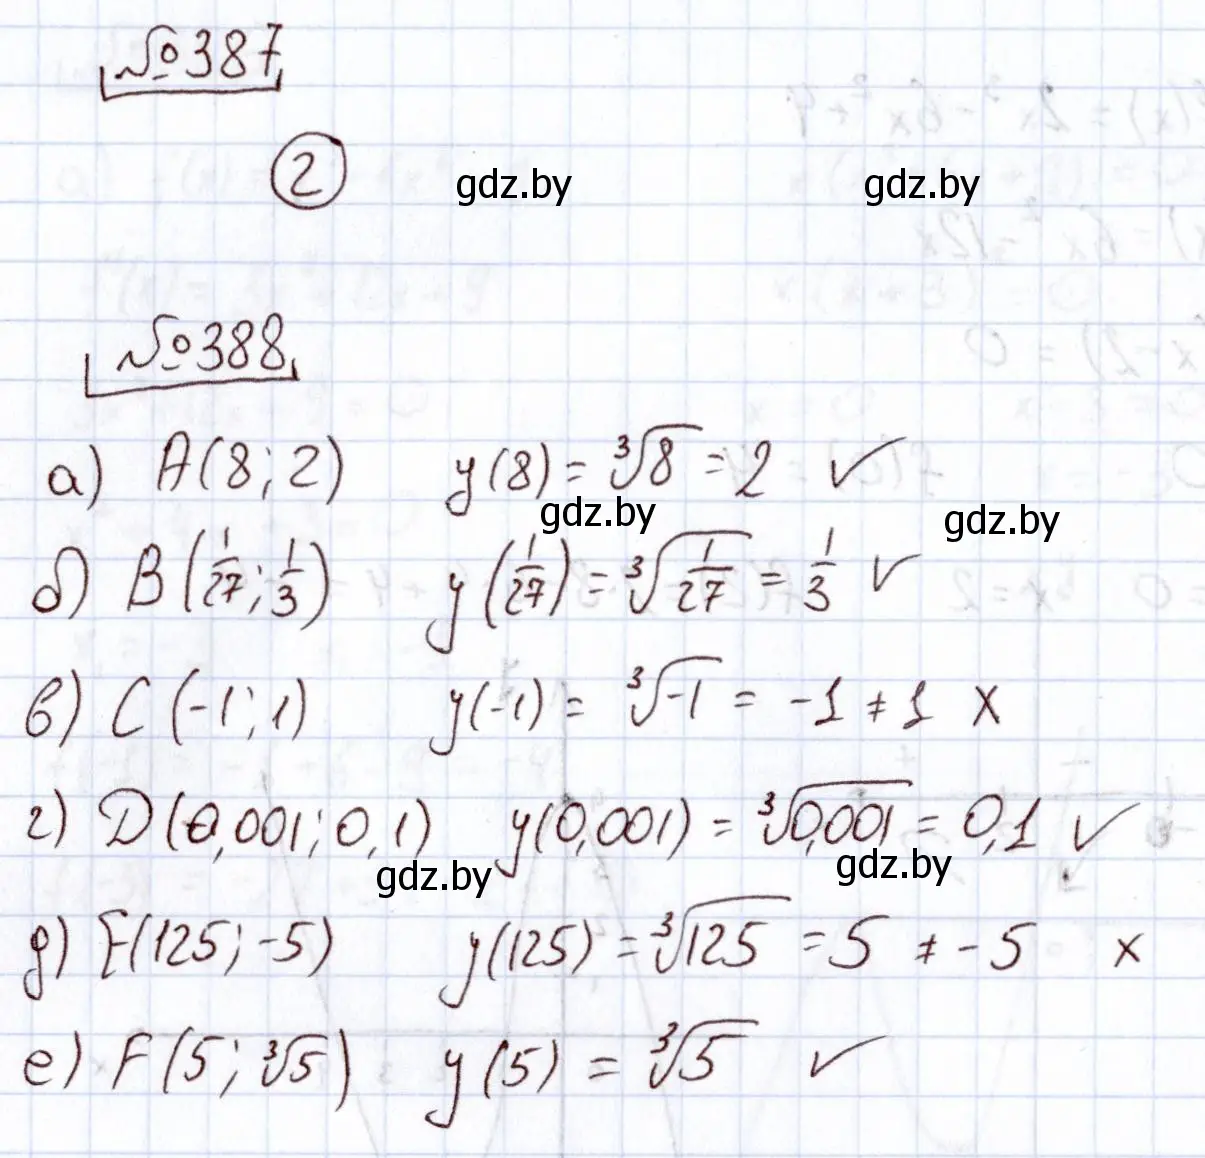 №387
2
gdz.by gdz.by
№388
а) A(8; 2) y(8) = ∛8 = 2 ✓
gdz.by gdz.by
б) B(1/27; 1/3) y(1/27) = ∛(1/27) = 1/3 ✓
в) C(-1; 1) y(-1) = ∛-1 = -1 ≠ 1 X
г) D(0,001; 0,1) y(0,001) = ∛0,001 = 0,1 ✓
gdz.by gdz.by
д) E(125; -5) y(125) = ∛125 = 5 ≠ -5 x
е) F(5; ∛5) y(5) = ∛5 ✓